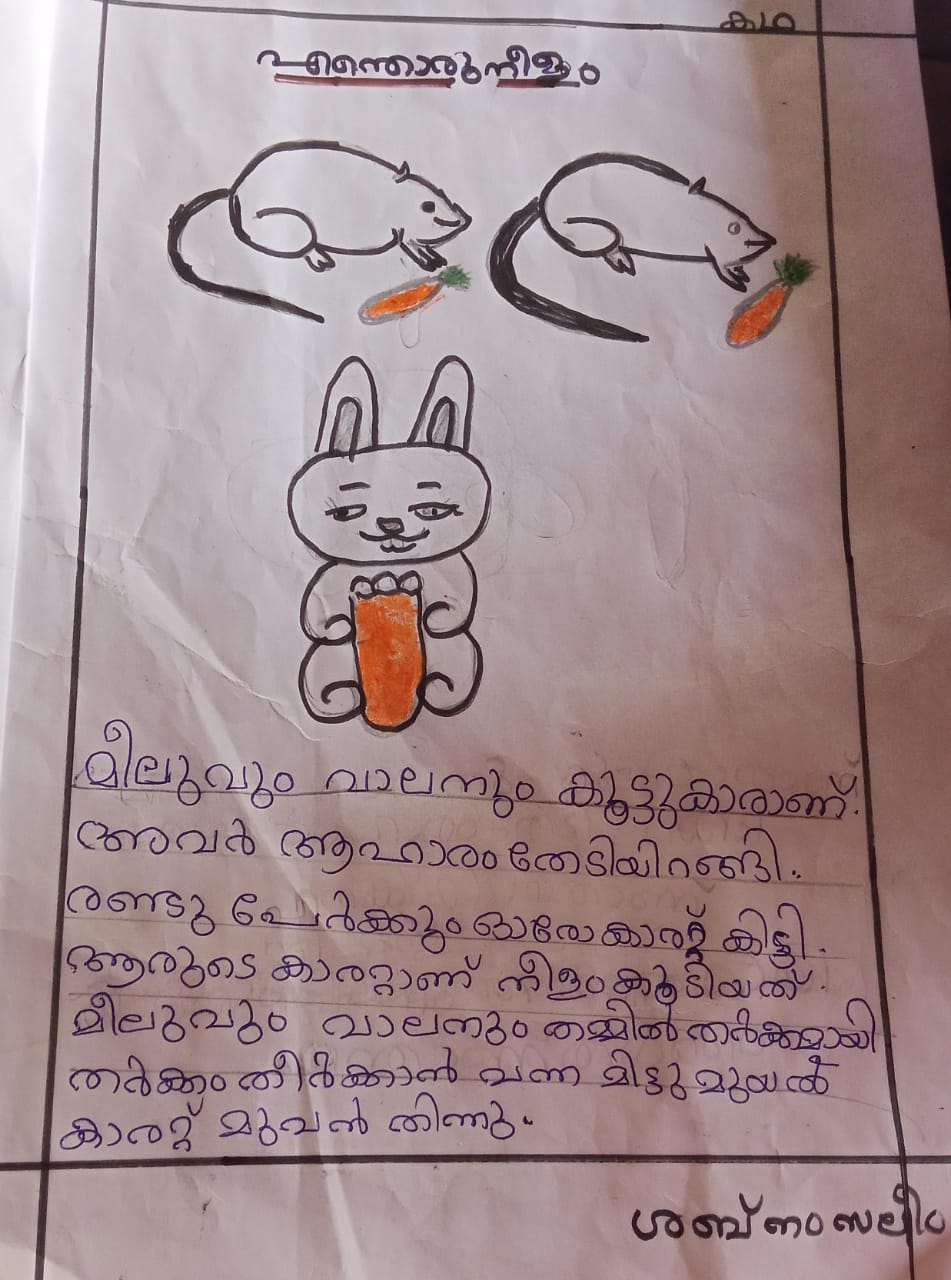 കഥ
എന്തൊരുനീളം
മീലുവും വാലനും കൂട്ടുകാരാണ്.
അവർ ആഹാരം തേടിയിറങ്ങി.
രണ്ടു പേർക്കും ഓരോ കാരറ്റ് കിട്ടി.
ആരുടെ കാരറ്റാണ് നീളം കൂടിയത്.
മീലുവും വാലനും തമ്മിൽ തർക്കമായി
തർക്കം തീർക്കാൻ വന്ന മിട്ടു മുയൽ
കാരറ്റ് മുവൻ തിന്നു.
ശബ്നം സലീം